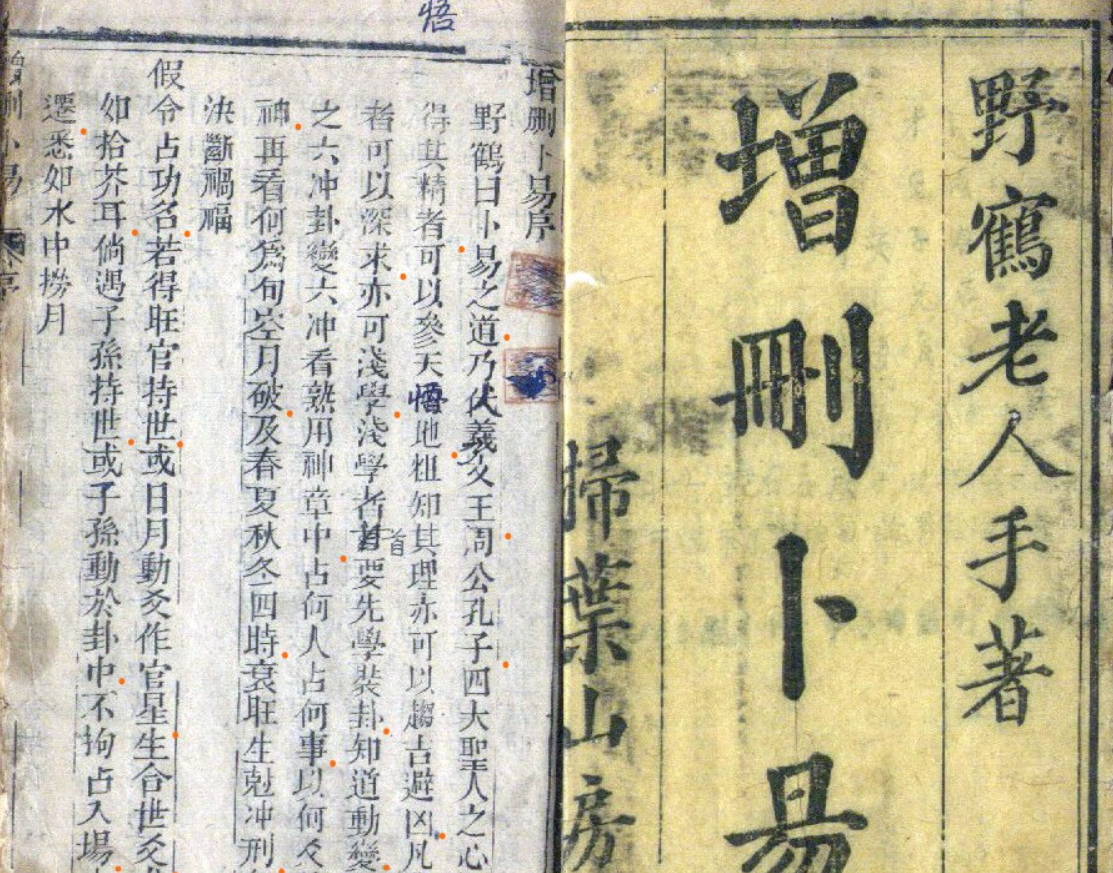 野鶴老人手著
增刪卜易
掃葉山房
增刪卜易序
野鶴曰卜易之道乃伏羲文王周公孔子四大聖人之心
得其精者可以參天悟地粗知其理亦可以趨吉避凶凡
者可以深求亦可淺學淺學者首要先學裝卦知道動變
之六冲卦變六冲看熟用神章中占何人占何事以何爻
神再看何爲旬空月破及春夏秋冬四時衰旺生尅冲刑
決斷禍福
假令占功名若得旺官持世或日月動爻作官星生合世爻
如拾芥耳倘遇子孫持世或子孫動於卦中不拘占入場
遷悉如水中撈月
增刪卜易
序
悟
首